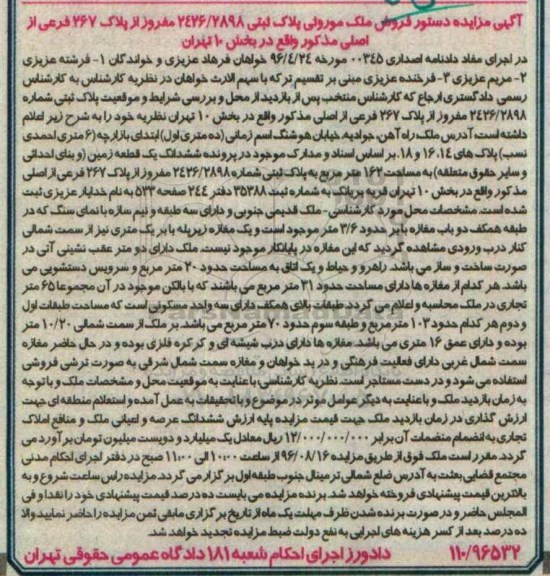 آگهی مزایده دستور فروش ملک موروثی پلاک ثبتی ۲۴۲۶/۲۸۹۸ مفروز از پلاک ۲۶۷ فرعی از
اصلی مذکور واقع در بخش ۱۰ تهران
در اجرای مفاد دادنامه اصداری ۰۰۳۴۵ مورخه ۹۶/۴/۲۴ خواهان فرهاد عزیزی و خواندگان ۱- فرشته عزیزی
۲- مریم عزیزی ۳- فرخنده عزیزی مبنی بر تقسیم ترکه با سهم الارث خواهان در نظریه کارشناس به کارشناس
رسمی دادگستری ارجاع که کارشناس منتخب پس از بازدید از محل و بررسی شرایط و موقعیت پلاک ثبتی شماره
۲۴۲۶/۲۸۹۸ مفروز از پلاک ۲۶۷ فرعی از اصلی مذکور واقع در بخش ۱۰ تهران نظریه خود را به شرح زیر اعلام
داشته است: آدرس ملک: راه آهن، جوادیه، خیابان هوشنگ اسم زمانی (ده متری اول) ابتدای بازارچه (۶ متری احمدی
نسب) پلاک های ۱۶،۱۴ و ۱۸. بر اساس اسناد و مدارک موجود در پرونده ششدانگ یک قطعه زمین (و بنای احداثی
و سایر حقوق متعلقه) به مساحت ۱۶۲ متر مربع به پلاک ثبتی شماره ۲۴۲۶/۲۸۹۸ مفروز از پلاک ۲۶۷ فرعی از اصلی
مذکور واقع در بخش ۱۰ تهران قریه بریانک به شماره ثبت ۳۵۳۸۸ دفتر ۲۴۴ صفحه ۵۳۳ به نام خدایار عزیزی ثبت
شده است. مشخصات محل مورد کارشناسی - ملک قدیمی جنوبی و دارای سه طبقه و نیم سازه با نمای سنگ که در
طبقه همکف دو باب مغازه با بر حدود ۳/۶ متر موجود است و یک مغازه زیرپله با بر یک متری نیز از سمت شمالی
کنار درب ورودی مشاهده گردید که این مغازه در پایانکار موجود نیست. ملک دارای دو متر عقب نشینی آتی در
صورت ساخت و ساز می باشد. راهرو و حیاط و یک اتاق به مساحت حدود ۲۰ متر مربع و سرویس دستشویی می
باشد. هر کدام از مغازه ها دارای مساحت حدود ۳۱ متر مربع می باشند که با بالکن موجود در آن مجموعا ۶۵ متر
تجاری در ملک محاسبه و اعلام می گردد. طبقات بالای همکف دارای سه واحد مسکونی است که مساحت طبقات اول
و دوم هر کدام حدود ۱۰۳ متر مربع و طبقه سوم حدود ۷۰ متر مربع می باشد. بر ملک از سمت شمالی ۱۰/۲۰ متر
بوده و دارای عمق ۱۶ متری می باشد. مغازه ها دارای درب شیشه ای و کرکره فلزی بوده و در حال حاضر مغازه
سمت شمال غربی دارای فعالیت فرهنگی و در ید خواهان و مغازه سمت شمال شرقی به صورت ترشی فروشی
استفاده می شود و در دست مستاجر است. نظریه کارشناسی: با عنایت به موقعیت محل و مشخصات ملک و با توجه
به زمان بازدید ملک و با عنایت به دیگر عوامل موثر در موضوع و با تحقیقات به عمل آمده و استعلام منطقه ای جهت
ارزش گذاری در زمان بازدید ملک جهت قیمت مزایده پایه ارزش ششدانگ عرصه و اعیانی ملک و منافع املاک
تجاری به انضمام منضمات آن برابر ۱۲/۰۰۰/۰۰۰/۰۰۰ ریال معادل یک میلیارد و دویست میلیون تومان برآورد می
گردد. مقرر است ملک فوق از طریق مزایده ۹۶/۰۸/۱۶ از ساعت ۱۰:۰۰ الی ۱۱:۰۰ صبح در دفتر اجرای احکام مدنی
مجتمع قضایی بعثت به آدرس ضلع شمالی ترمینال جنوب طبقه اول برگزار می گردد. مزایده راس ساعت شروع و به
بالاترین قیمت پیشنهادی فروخته خواهد شد. برنده مزایده می بایست ده درصد قیمت پیشنهادی خود را نقدا و فی
المجلس حاضر و در صورت برنده شدن ظرف مهلت یک ماه از تاریخ برگزاری مابقی ثمن مزایده را حاضر نمایید والا
ده درصد بعد از کسر هزینه های اجرایی به نفع دولت ضبط مزایده تجدید خواهد شد.
۱۱۰/۹۶۵۳۲ دادورز اجرای احکام شعبه ۱۸۱ دادگاه عمومی حقوقی تهران